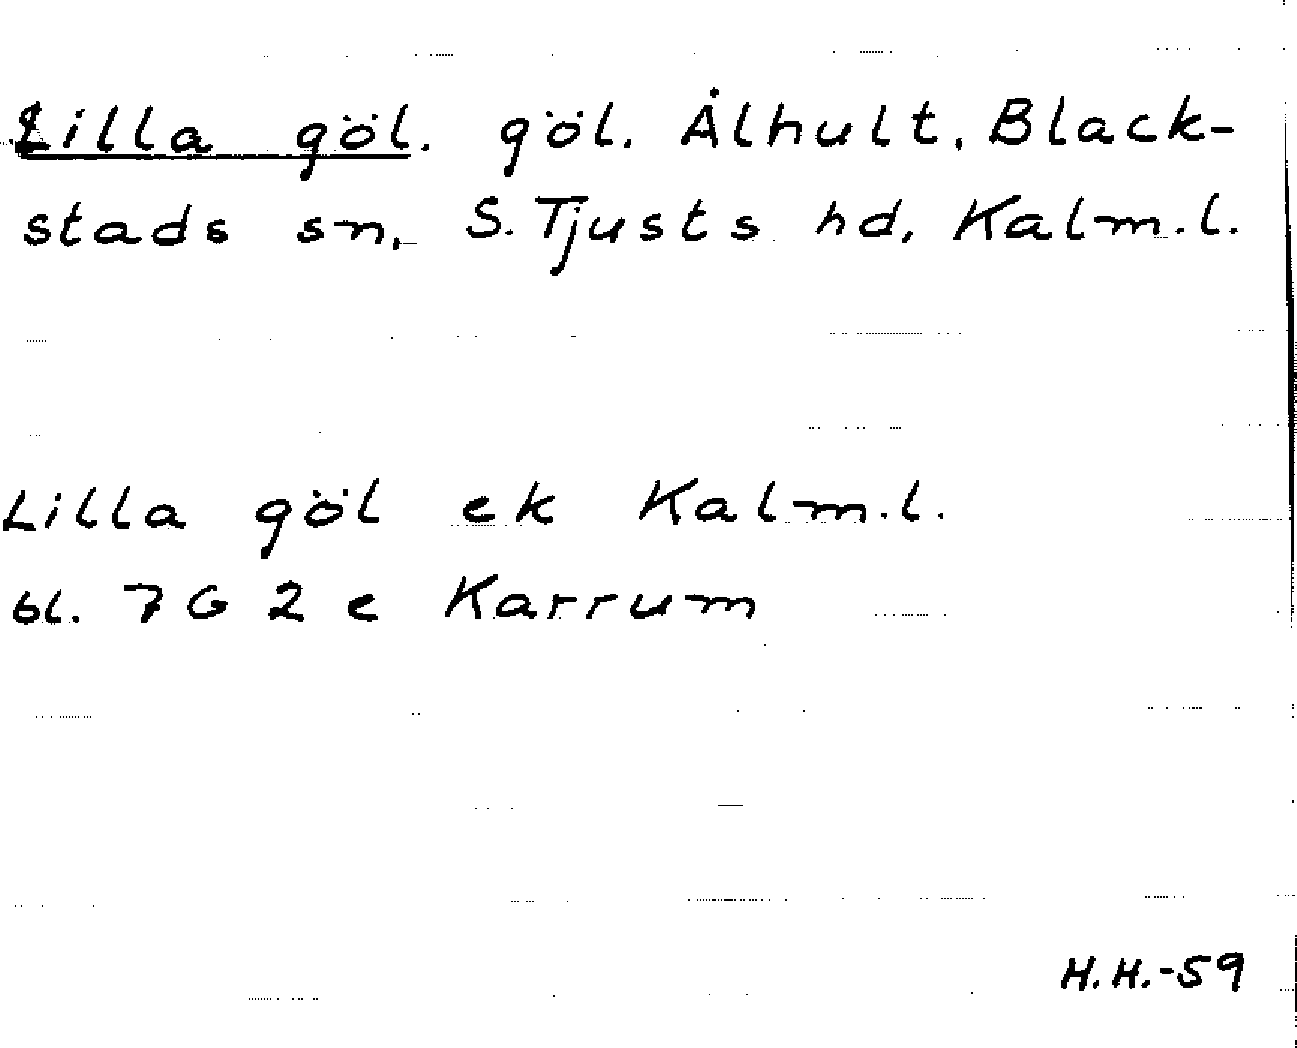 Lilla göl. göl. Ålhult, Black-
stads sn, S. Tjusts hd, Kalm.l.
Lilla göl ek Kalm.l.
bl. 7G 2e Karrum
H.H.-59